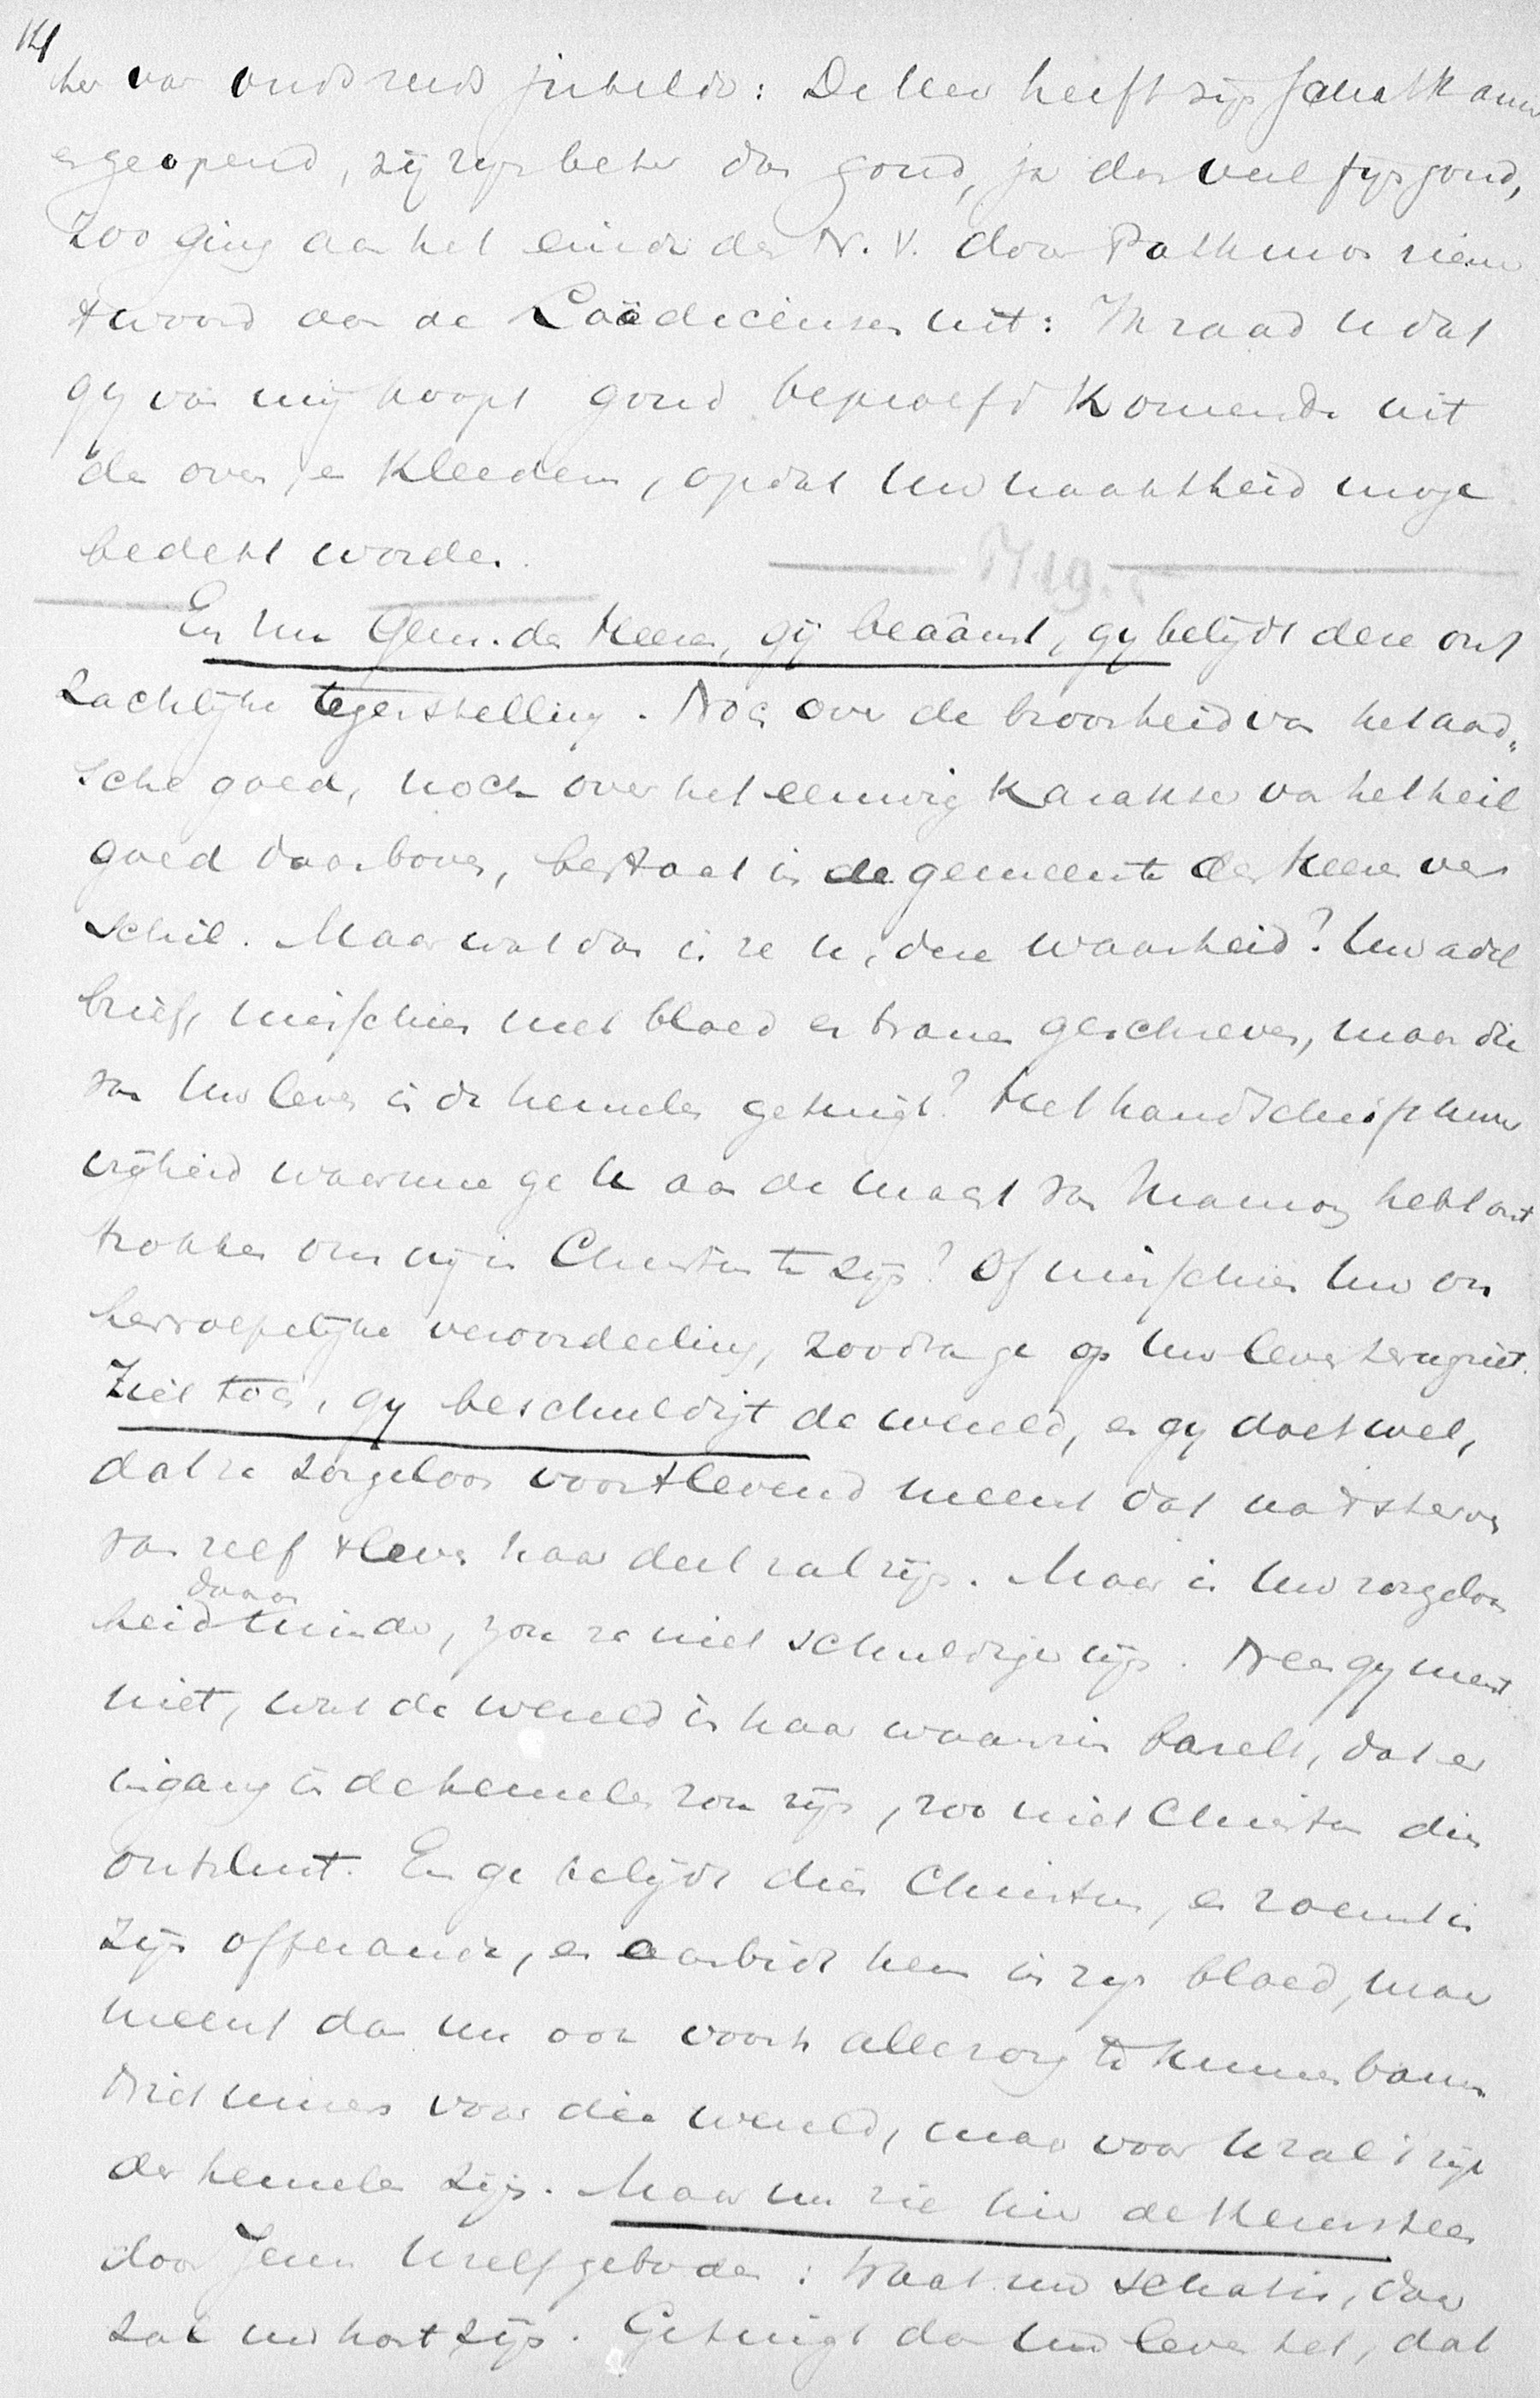 14
her van ouds reeds jubelde: De Heer heeft zijn schatkamer
geopend, zij zijn beter dan goud, ja dan veel fijn goud,
zoo ging aan het einde des N.V. door Pathmos ziener
t woord aan de Laödicensen uit: Ik raad u dat
gij van mij koopt goud beproefd komende uit
de oven, en kleederen, opdat uw naaktheid moge
bedekt worden.
En nu Gem. des Heeren, gij beäamt, gij belijdt deze ont
zachlijke tegenstelling. Noch over de broosheid van het aard„
sche goed, noch over het eeuwig karakter van het heil
goed daarboven, bestaat in de gemeente des Heeren ver
schil. Maar wat dan is ze u, deze waarheid? Uw adel
brief, misschien met bloed en tranen geschreven, maar die
van uw leven in de hemelen getuigt? Het handschrift uwer
vrijheid waarmee ge u aan de macht van Mamon hebt ont
trokken om vrij in Christus te zijn? Of misschien uw on
herroepelijke veroordeeling, zoodra ge op uw leven terugziet.
Ziet toch, gij beschuldigt de wereld, en gij doet wel,
dat ze zorgeloos voortlevend meent dat na t sterven
van zelf t leven haar deel zal zijn. Maar in uw zorgeloos
heid daaromtrent
minder, zou ze niet schuldiger zijn. Neen gij meent
niet, wat de wereld in haar waanzin bazelt, dat er
ingang in de hemelen zou zijn, zoo niet Christus dien
ontsluit. En ge belijdt dien Christus, en roemt in
zijn offerande, en aanbidt hem in zijn bloed, maar
meent dan nu ook voorts alle zorg te kunnen bannen
Niet immers voor die wereld, maar voor u zal t rijk
der hemelen zijn. Maar nu zie hier de toetssteen
door Jezus u zelf geboden: Waar uw schat is, daar
zal uw hart zijn. Getuigt dan uw leven het, dat